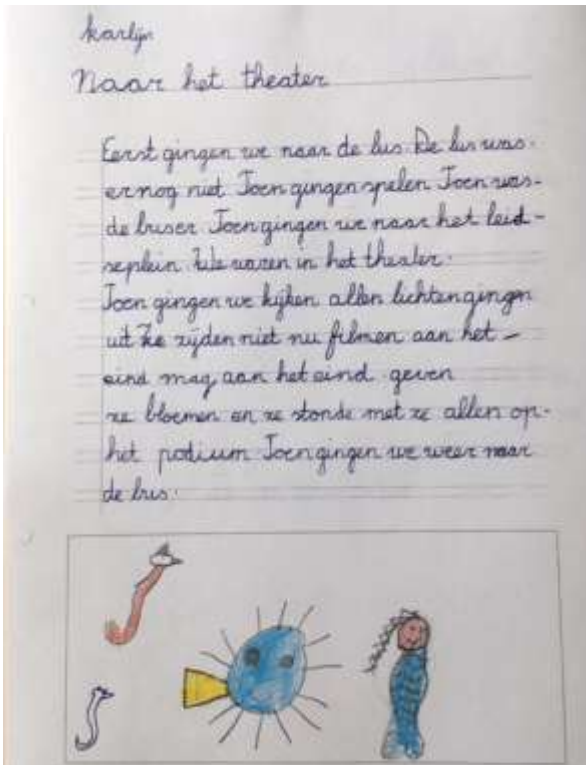 karlijn
Naar het theater
Eerst gingen we naar de bus. De bus was-
er nog niet Toen gingen spelen Toen was-
de buser Toen gingen we naar het leid-
seplein. We waren in het theater.
Toen gingen we kijken allen lichten gingen
uit ze zijden niet nu filmen aan het-
eind mag aan het eind geven
ze bloemen en ze stonde met ze allen op-
het podium Toen gingen we weer naar
de bus.